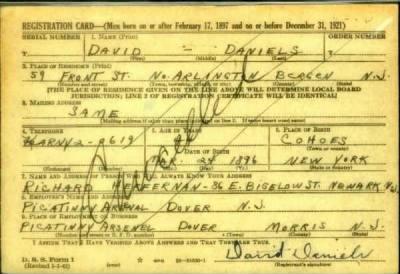 REGISTRATION CARD—(Men born on or after February 17, 1897 and on or before December 31, 1921)
SERIAL NUMBER 1. NAME (Print) ORDER NUMBER
DAVID — DANIELS
(First) (Middle) (Last)
2. PLACE OF RESIDENCE (Print)
59 FRONT ST. NO. ARLINGTON BERGEN N.J.
(Number and street) (Town, township, village, or city) (County) (State)
[THE PLACE OF RESIDENCE GIVEN ON THE LINE ABOVE WILL DETERMINE LOCAL BOARD
JURISDICTION; LINE 2 OF REGISTRATION CERTIFICATE WILL BE IDENTICAL]
3. MAILING ADDRESS
SAME
[Mailing address if other than place indicated on line 2. If same insert word same]
4. TELEPHONE 5. AGE IN YEARS 6. PLACE OF BIRTH
KEARNY 2-0619 COHOES
DATE OF BIRTH (Town or county)
MAR. 24 1896 NEW YORK
(Mo.) (Day) (Yr.) (State or country)
7. NAME AND ADDRESS OF PERSON WHO WILL ALWAYS KNOW YOUR ADDRESS
RICHARD HEFFERNAN-36 E. BIGELOW ST. NEWARK N.J.
8. EMPLOYER'S NAME AND ADDRESS
PICATINNY ARSENAL DOVER N.J.
9. PLACE OF EMPLOYMENT OR BUSINESS
PICATINNY ARSENEL DOVER MORRIS N.J.
(Number and street or R. F. D. number) (Town) (County) (State)
I AFFIRM THAT I HAVE VERIFIED ABOVE ANSWERS AND THAT THEY ARE TRUE.
D. S. S. Form 1
David Daniels